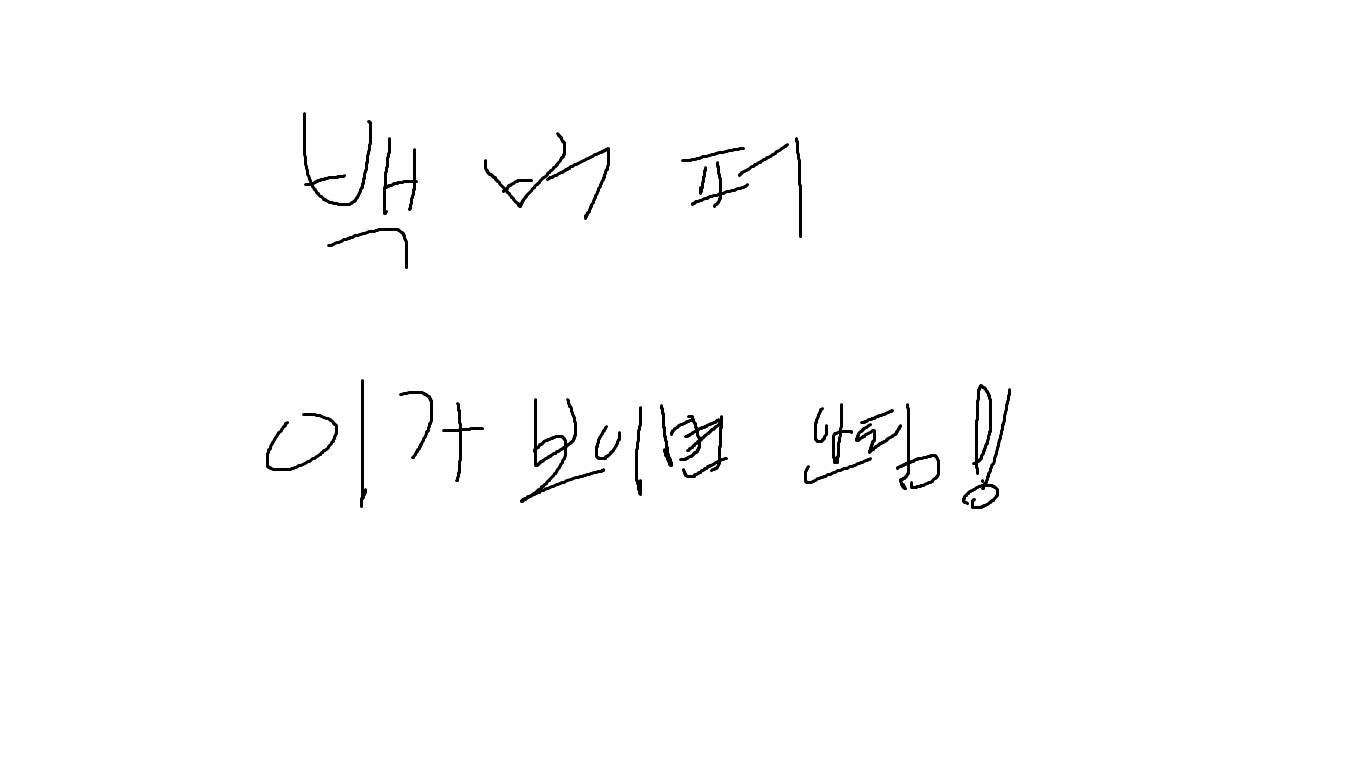 백 버 퍼
이가 보이면 안됨!